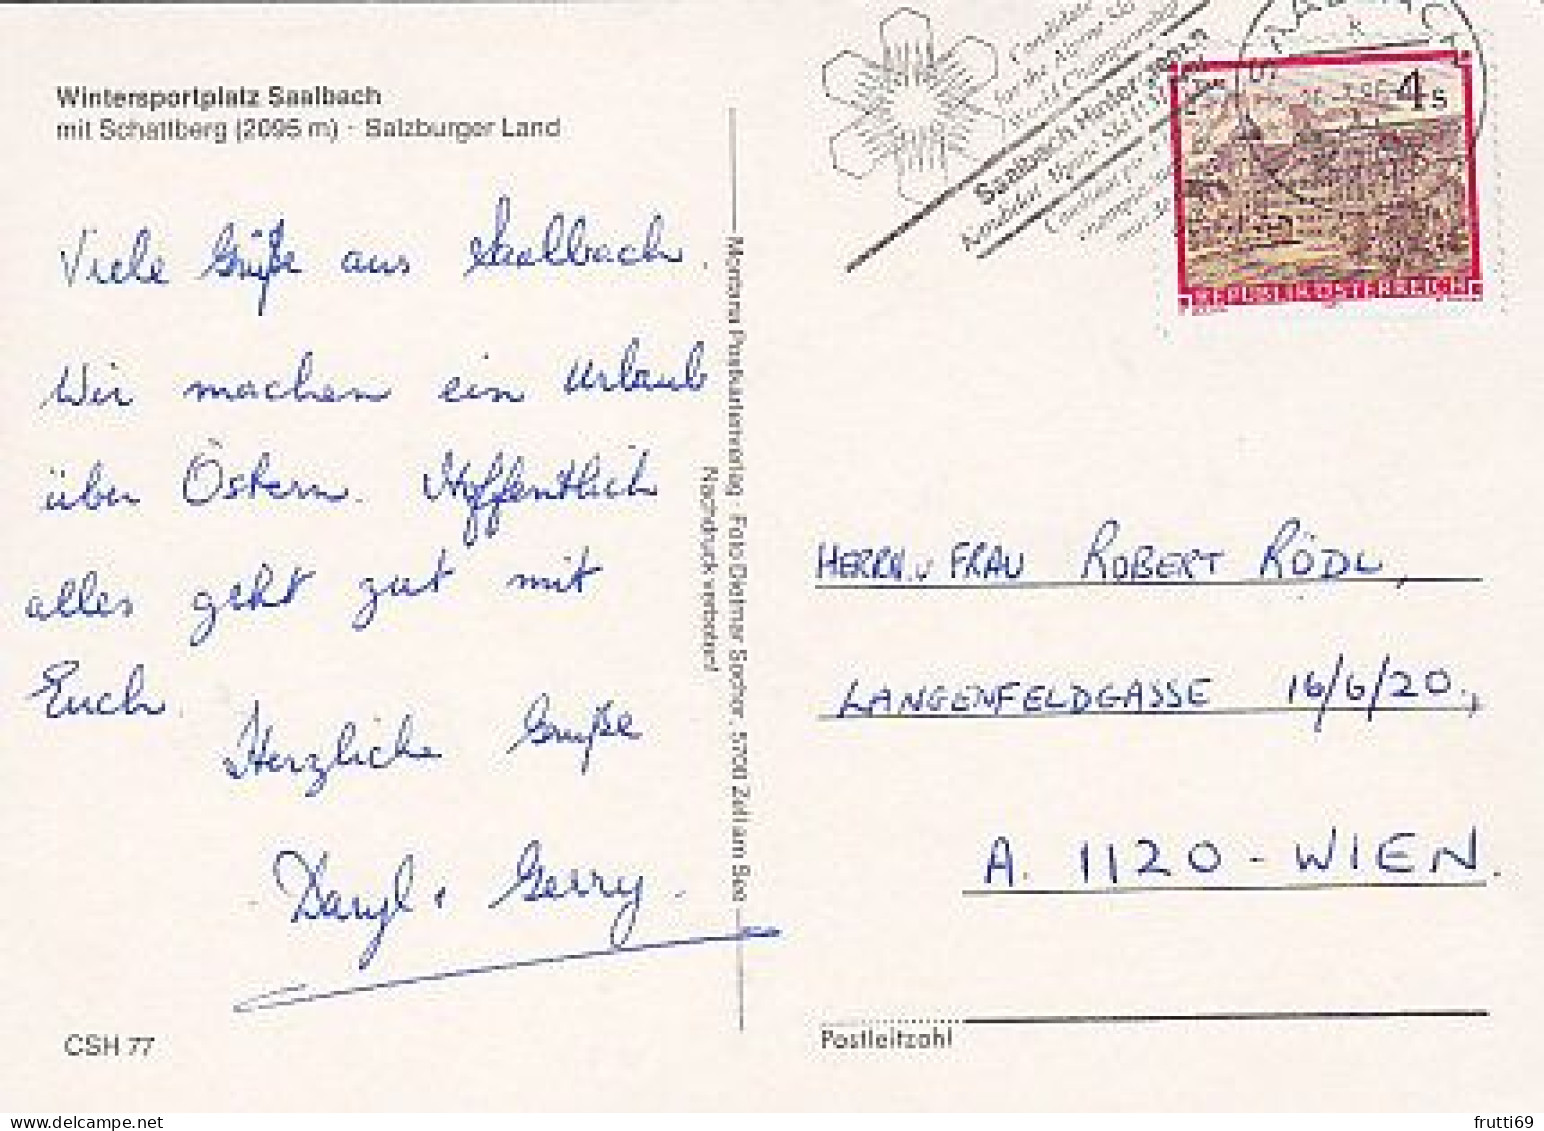 Wintersportplatz Saalbach
mit Schattberg (2095 m) · Salzburger Land
Viele Grüße aus Saalbach.
Wir machen ein Urlaub
über Östern. Hoffentlich
alles geht gut mit
Euch.
Herzliche Grüße
Daryl + Gerry.
CSH 77
Montana Postkartenverlag · Foto Dietmar Sochor, 5700 Zell am See
Nachdruck verboten!
Candidate
for the Alpine Ski
World Championship
Saalbach Hinterglemm
Kandidat Alpine Ski
SAALBACH
4 S
REPUBLIK ÖSTERREICH
HERRN. U FRAU ROBERT RÖDL,
LANGENFELDGASSE 16/6/20.,
A. 1120 - WIEN.
Postleitzahl
frutti69